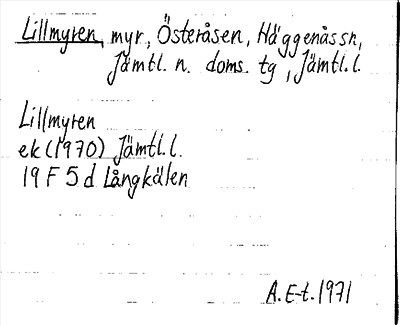 Lillmyren, myr, Österåsen, Häggenåssn,
Jämtl. n. doms. tg, Jämtl.l.
Lillmyren
ek (1970) Jämtl.l.
19 F 5 d Långkälen
A. E-t. 1971